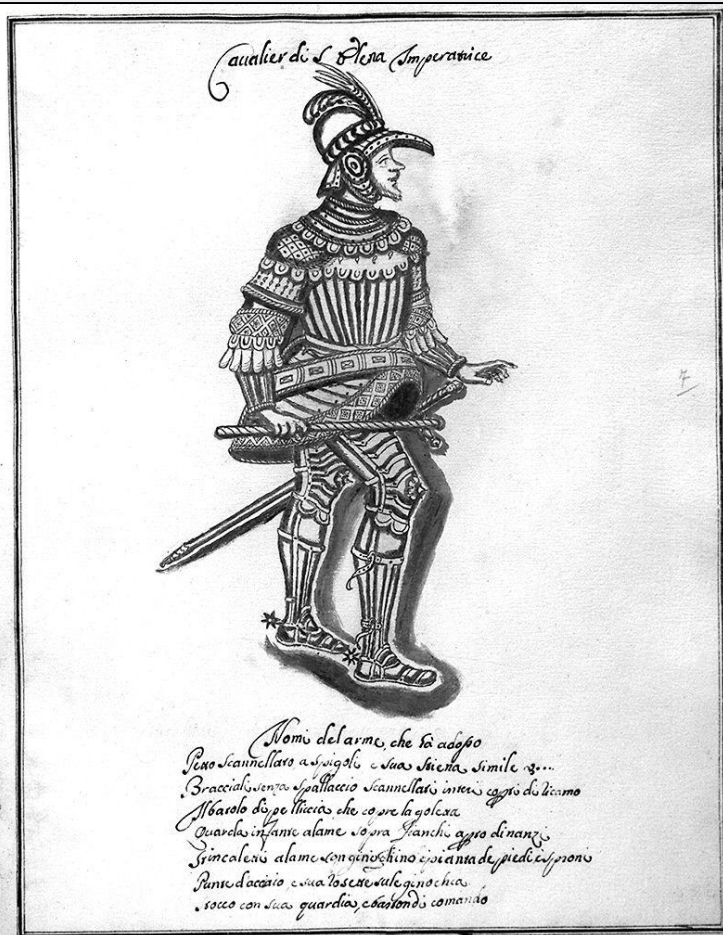 Caualier di S Elena Imperatrice
7
Nomi del arme, che hà adosso
Petto scannellato a spigoli e sua schena simile
Bracciali senza spallaccio scannellati interi copri di ricamo
Il bauolo di pelliccia che copre la goletta
Guarda infante a lame sopra fianchi apro dinanzi
a lame con ginochino e pianta de piedi e sproni
Punte d'acciaio, e sua rosette sule ginochia
stocco con sua guardia, e baston di comando